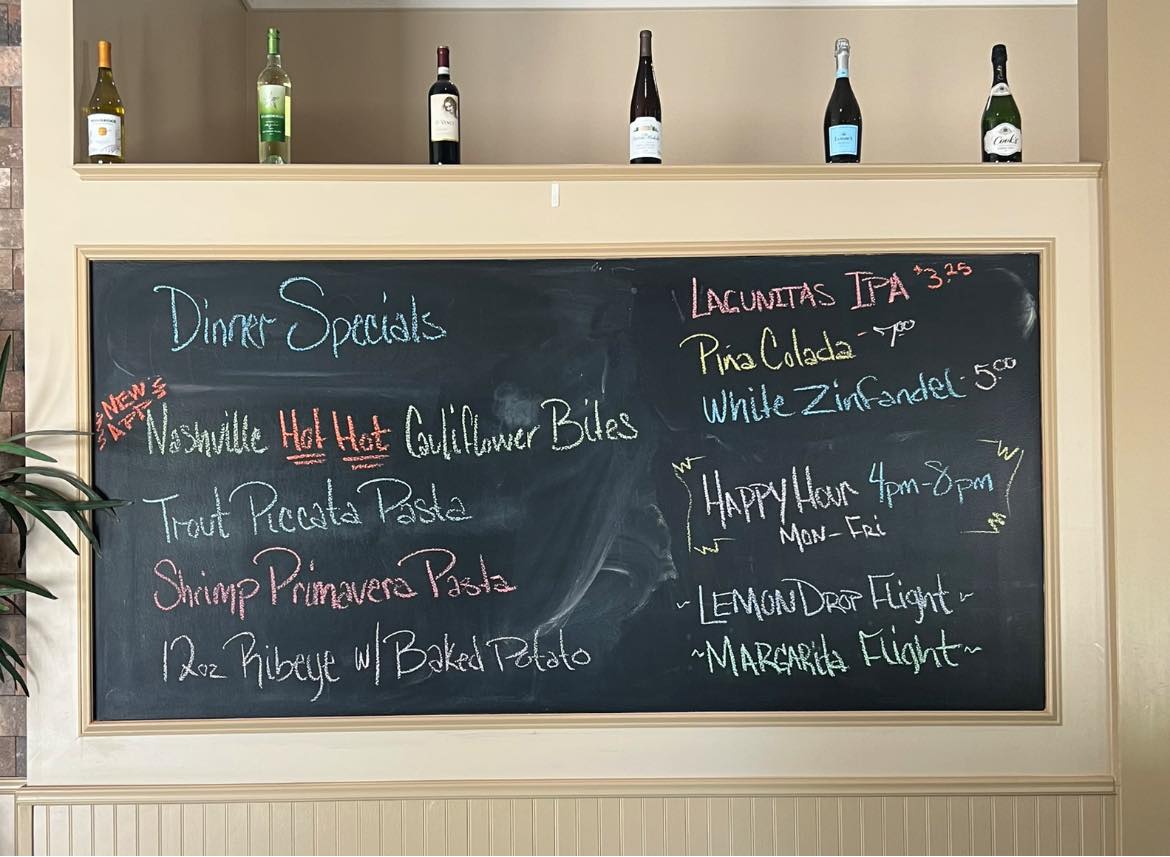 Cook's
Dinner Specials
NEW
APP
Nashville Hot Hot Cauliflower Bites
Trout Piccata Pasta
Shrimp Primavera Pasta
12oz Ribeye w/ Baked Potato
LAGUNITAS IPA $3.25
Piña Colada - 7.00
White Zinfandel - 5.00
HAPPY HOUR 4pm-8pm
MON-FRI
~LEMON DROP Flight~
~MARGARITA Flight~